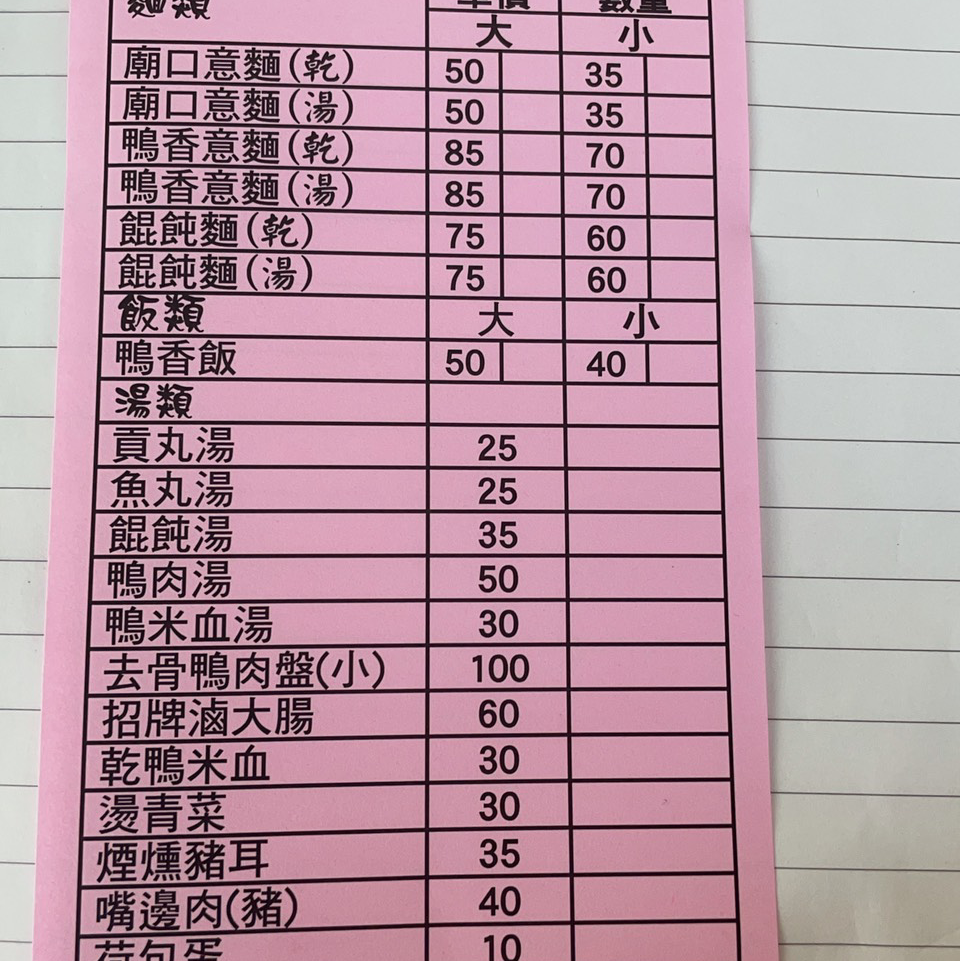 麵類 單價 數量
大 小
廟口意麵(乾) 50 35
廟口意麵(湯) 50 35
鴨香意麵(乾) 85 70
鴨香意麵(湯) 85 70
餛飩麵(乾) 75 60
餛飩麵(湯) 75 60
飯類 大 小
鴨香飯 50 40
湯類
貢丸湯 25
魚丸湯 25
餛飩湯 35
鴨肉湯 50
鴨米血湯 30
去骨鴨肉盤(小) 100
招牌滷大腸 60
乾鴨米血 30
燙青菜 30
煙燻豬耳 35
嘴邊肉(豬) 40
荷包蛋 10